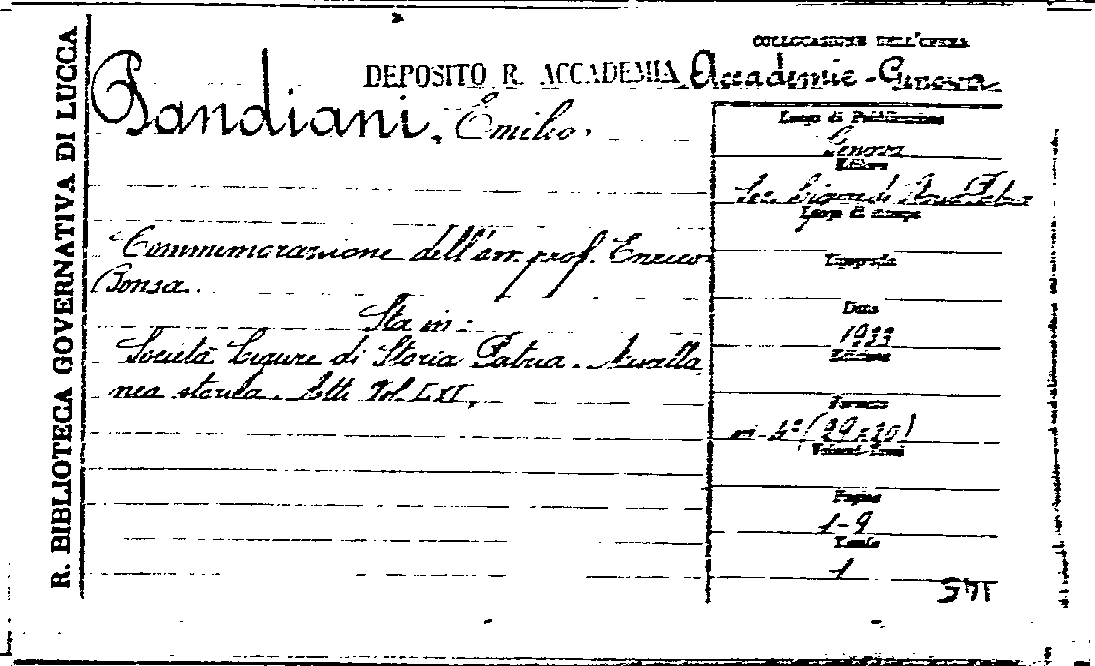 R. BIBLIOTECA GOVERNATIVA DI LUCCA
COLLOCAZIONE DELL'OPERA
DEPOSITO R. ACCADEMIA Accademie - Genova
Pandiani, Emilio.
Commemorazione dell'avv. prof. Enrico
Bensa.
Sta in:
Società Ligure di Storia Patria. Miscella
nea storica. Atti Vol. LXI.
Luogo di Pubblicazione
Genova
Editore
Soc. Ligure di Storia Patria
Luogo di stampa
Tipografia
Data
1933
Edizione
Formato
in-4° (29x20)
Volumi-Tomi
Pagine
1-9
Tavole
1